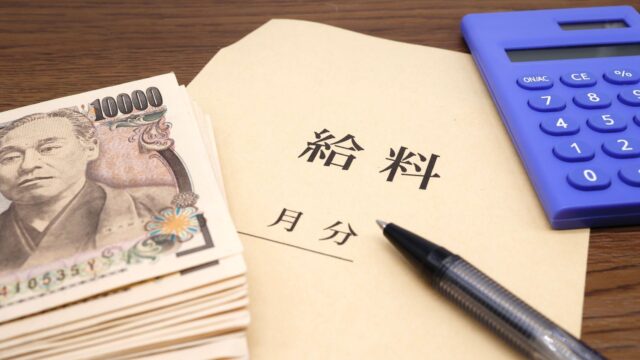 10000
給料
月分
ON/AC CE %
7 8 9
4 5
1 2
0